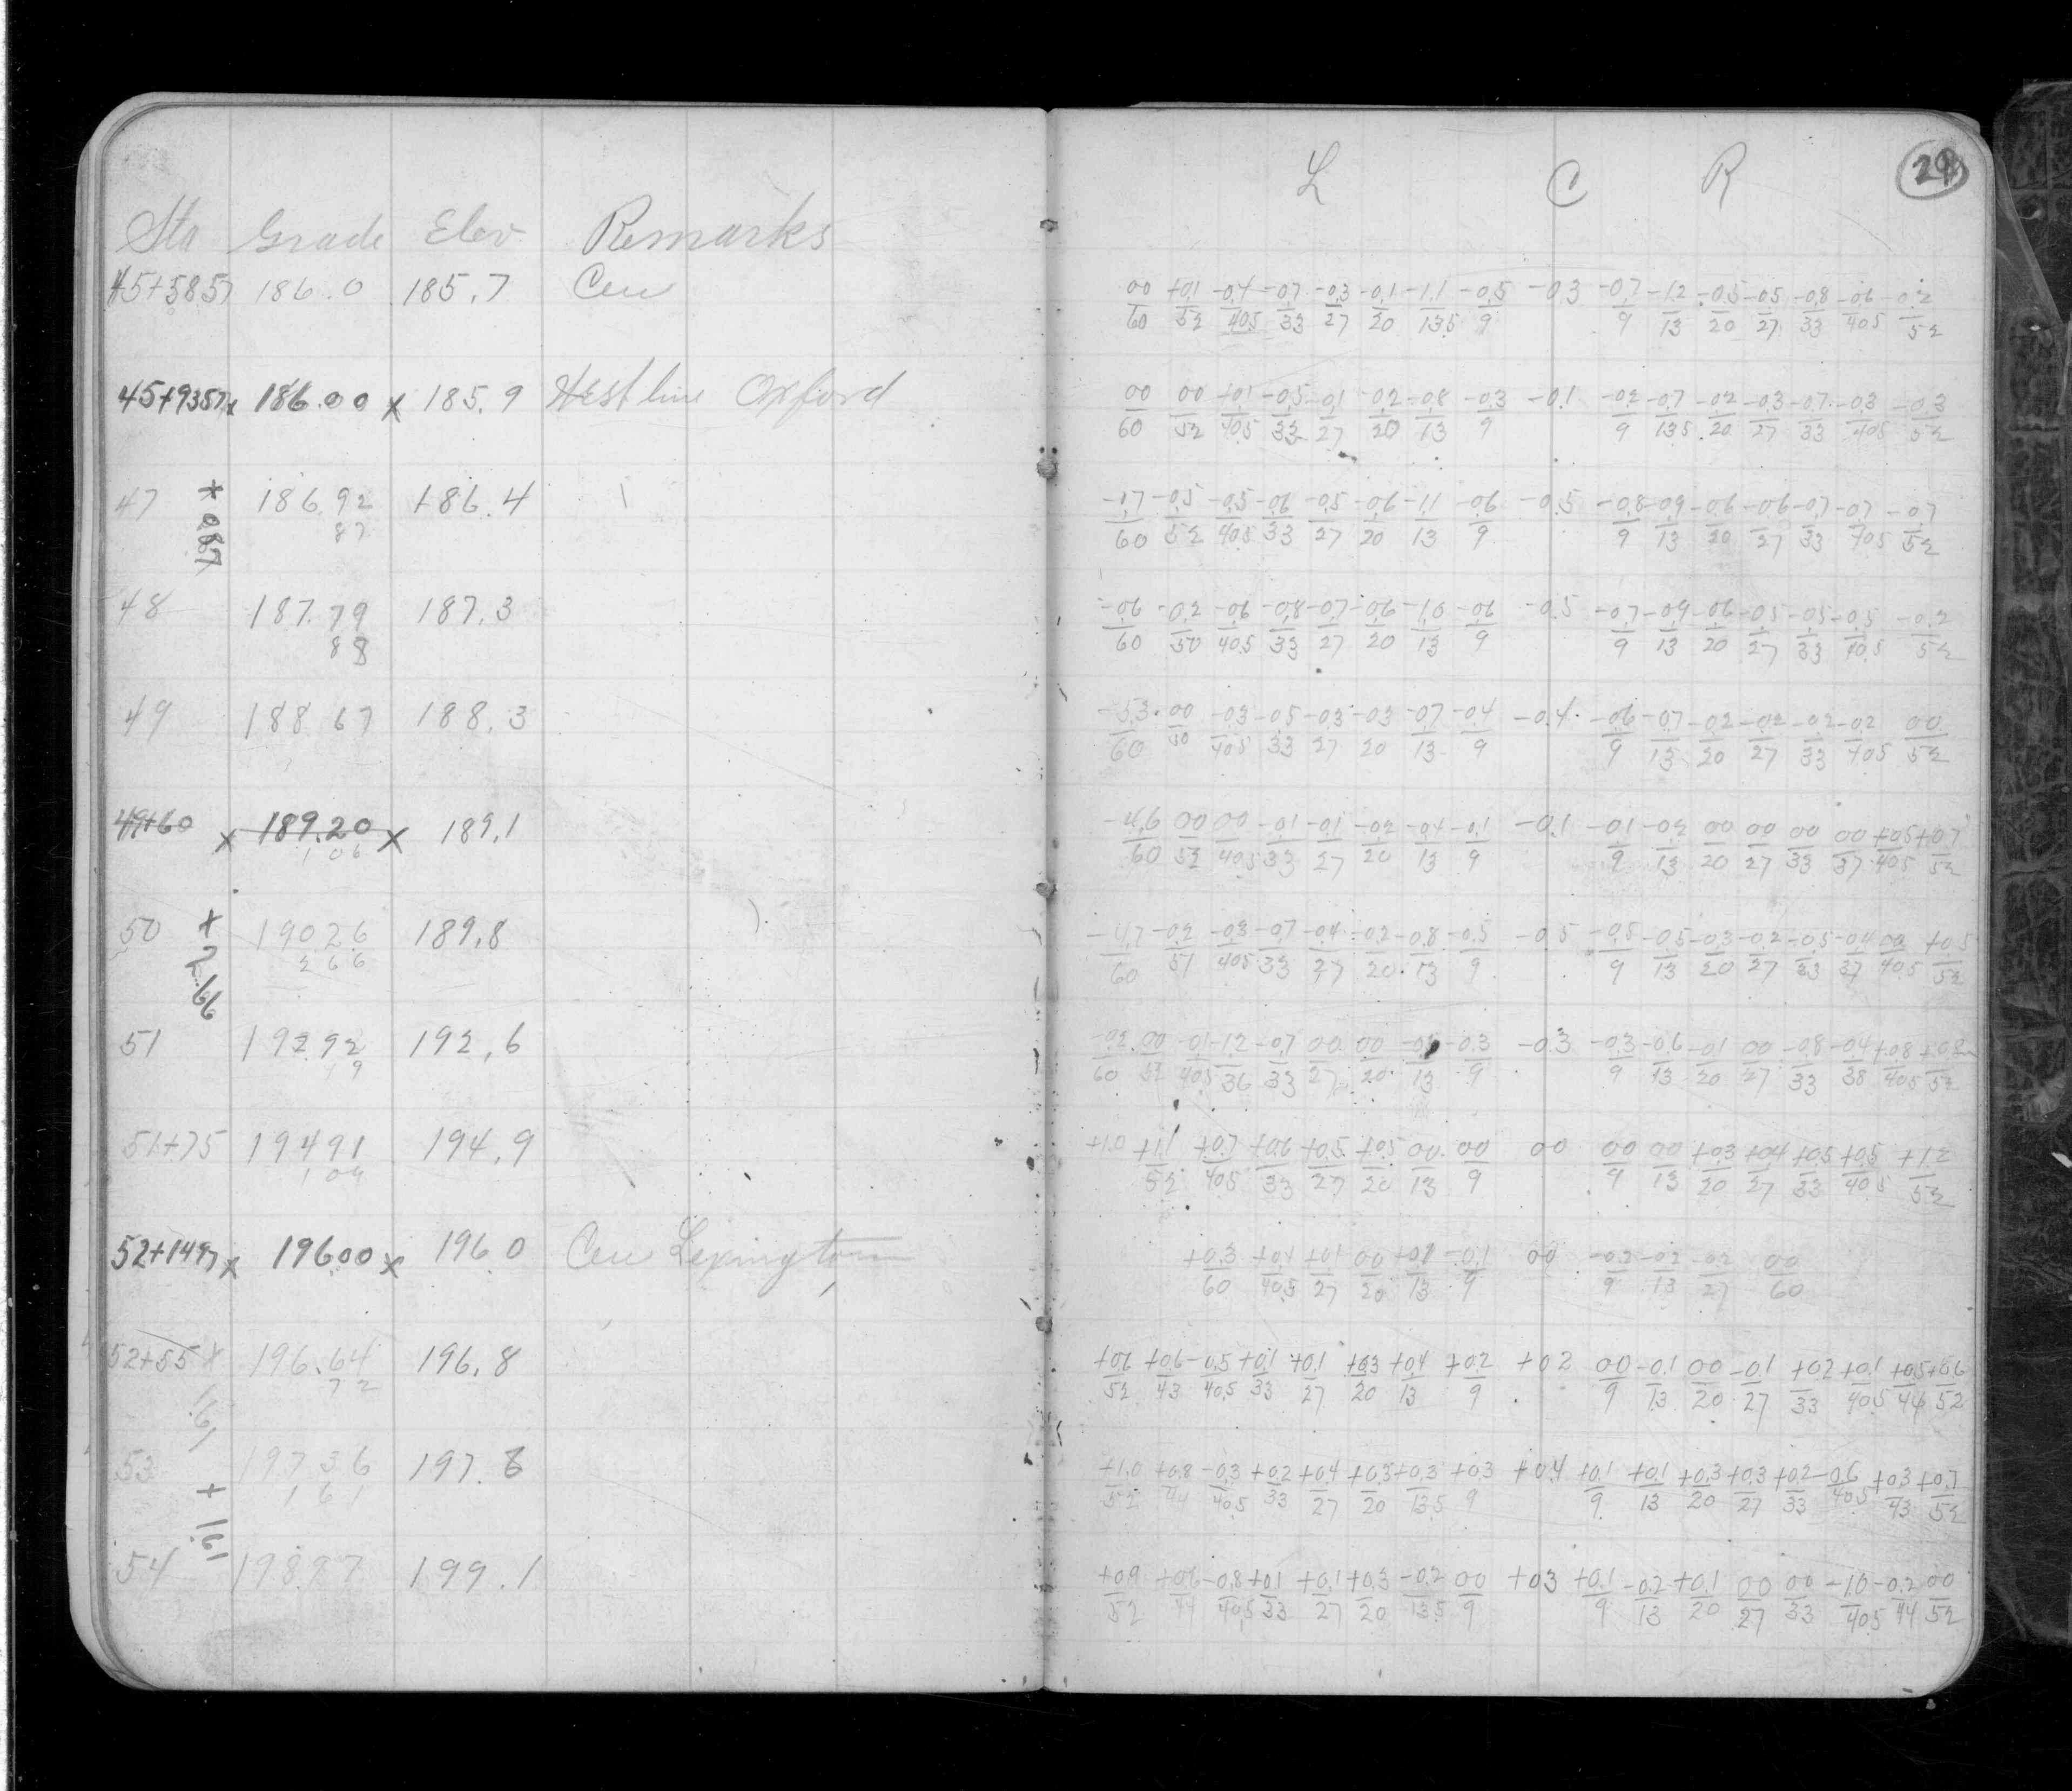 Sta Grade Elev Remarks
45+5857 186.0 185.7 Cen
45+9357 x 186.00 x 185.9 West line Oxford
47 186.92 186.4
87
+ 0.87
48 187.79 187.3
88
49 188.67 188.3
49+60 x 189.20 x 189.1
1 06
50 190.26 189.8
2 66
+ 2.66
51 192.92 192.6
1 9
51+75 194.91 194.9
1 09
52+1497 x 196.00 x 196.0 Cen Lexington
52+55 x 196.64 196.8
72
1.61
53 197.36 197.8
1 61
+ 1.61
54 198.97 199.1
L C R 29
00/60 +0.1/52 -0.4/40.5 -0.7/33 -0.3/27 -0.1/20 -1.1/13.5 -0.5/9 -0.3 -0.7/9 -1.2/13 -0.5/20 -0.5/27 -0.8/33 -0.6/40.5 -0.2/52
00/60 00/52 +0.1/40.5 -0.5/33 -0.1/27 -0.2/20 -0.8/13 -0.3/9 -0.1 -0.2/9 -0.7/13.5 -0.2/20 -0.3/27 -0.7/33 -0.3/40.5 -0.3/52
-1.7/60 -0.5/52 -0.5/40.5 -0.6/33 -0.5/27 -0.6/20 -1.1/13 -0.6/9 -0.5 -0.8/9 -0.9/13 -0.6/20 -0.6/27 -0.7/33 -0.7/40.5 -0.7/52
-0.6/60 -0.2/50 -0.6/40.5 -0.8/33 -0.7/27 -0.6/20 -1.0/13 -0.6/9 -0.5 -0.7/9 -0.9/13 -0.6/20 -0.5/27 -0.5/33 -0.5/40.5 -0.2/52
-5.3/60 00/50 -0.3/40.5 -0.5/33 -0.3/27 -0.3/20 -0.7/13 -0.4/9 -0.4 -0.6/9 -0.7/13 -0.2/20 -0.2/27 -0.2/33 -0.2/40.5 00/52
-4.6/60 00/52 00/40.5 -0.1/33 -0.1/27 -0.2/20 -0.4/13 -0.1/9 -0.1 -0.1/9 -0.2/13 00/20 00/27 00/33 00/37 +0.5/40.5 +0.7/52
-4.7/60 -0.2/51 -0.3/40.5 -0.7/33 -0.4/27 -0.2/20 -0.8/13 -0.5/9 -0.5 -0.5/9 -0.5/13 -0.3/20 -0.2/27 -0.5/33 -0.4/37 00/40.5 +0.5/52
-0.2/60 00/52 -0.1/40.5 1.2/36 -0.7/33 00/27 00/20 /13 -0.3/9 -0.3 -0.3/9 -0.6/13 -0.1/20 00/27 -0.8/33 -0.4/38 +0.8/40.5 +0.8/52
+1.0 +1.1/52 +0.7/40.5 +0.6/33 +0.5/27 +0.5/20 00/13 00/9 00 00/9 00/13 +0.3/20 +0.4/27 +0.5/33 +0.5/40.5 +1.2/52
+0.3/60 +0.4/40.5 +0.1/27 00/20 +0.1/13 -0.1/9 00 -0.2/9 -0.2/13 -0.2/27 00/60
+0.6/52 +0.6/43 -0.5/40.5 +0.1/33 +0.1/27 +0.3/20 +0.4/13 +0.2/9 +0.2 00/9 -0.1/13 00/20 -0.1/27 +0.2/33 +0.1/40.5 +0.5/44 +0.6/52
+1.0/52 +0.8/44 -0.3/40.5 +0.2/33 +0.4/27 +0.3/20 +0.3/13.5 +0.3/9 +0.4 +0.1/9 +0.1/13 +0.3/20 +0.3/27 +0.2/33 -0.6/40.5 +0.3/43 +0.7/52
+0.9/52 +0.6/44 -0.8/40.5 +0.1/33 +0.1/27 +0.3/20 -0.2/13.5 00/9 +0.3 +0.1/9 -0.2/13 +0.1/20 00/27 00/33 -1.0/40.5 -0.2/44 00/52